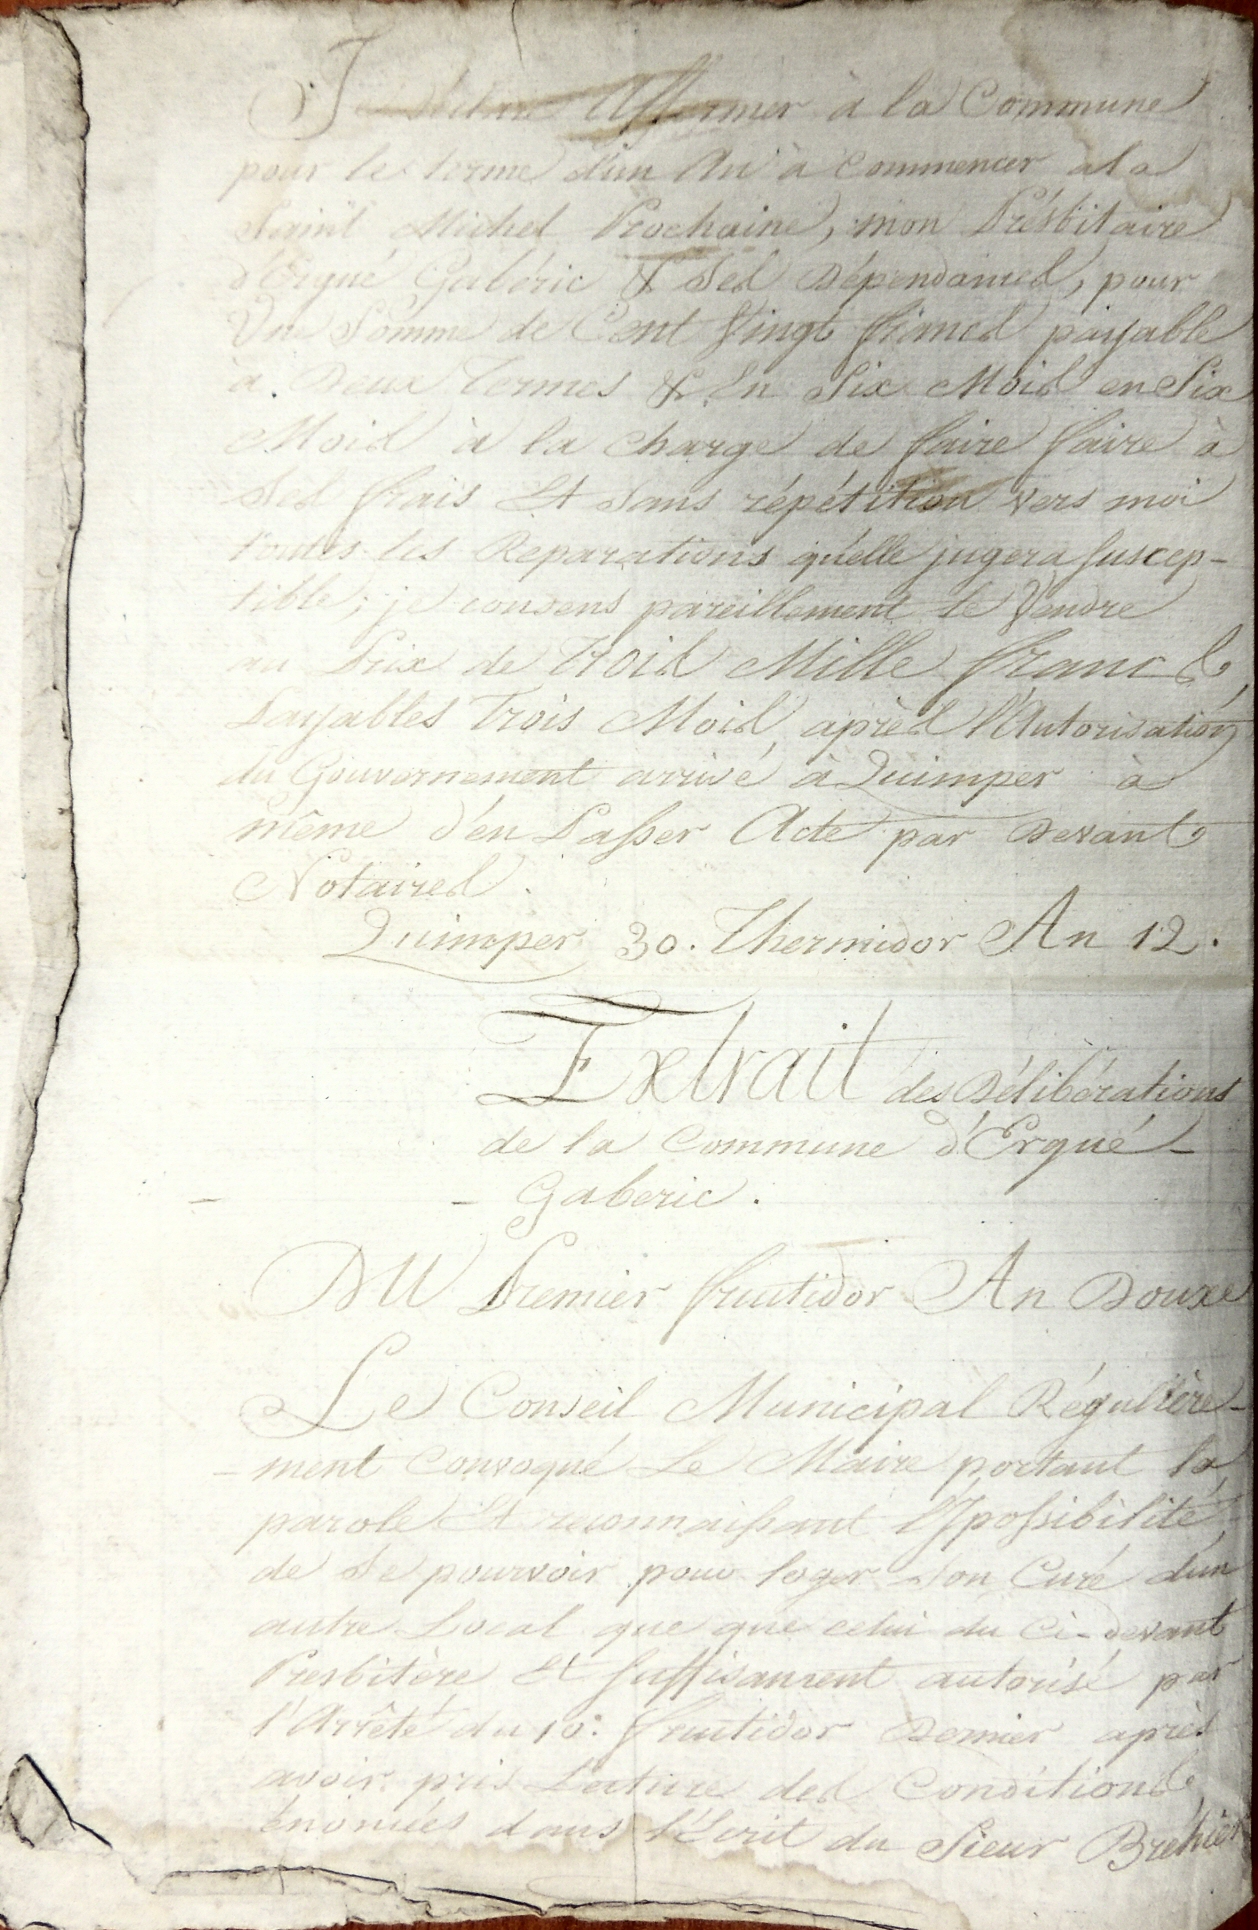 Je            Affermer à la Commune
pour le terme d'un An à Commencer ala
Saint Michel Prochaine, mon Présbitaire
d'Ergué Gabéric & Ses Dépendances, pour
Une Somme de Cent Vingt francs payable
à Deux Termes & En Six Mois en Six
Mois à la charge de faire faire à
Ses frais Et Sans répétition vers moi
toutes les Reparations qu'elle jugera Suscep-
tible; je consens pareillement le Vendre
au Prix de Trois Mille francs
Payables Trois Mois après l'Autorisation
du Gouvernement arrivé à Quimper à
même d'en Passer Acte par Devant
Notaires.
Quimper 30. Thermidor An 12.
Extrait des Délibérations
de la Commune d'Ergué-
- Gaberic.
DU Premier fructidor An Douze
Le Conseil Municipal Régulière-
-ment Convoqué Le Maire portant la
parole Et reconnaissant l'Ipossibilité
de Se pourvoir pour loger Son Curé d'un
autre Local que que celui du Ci-devant
Presbitère Et Suffisament autorisé par
l'Arrêté du 10. fructidor Dernier après
avoir pris Lecture des Conditions
énoncées dans l'Ecrit du Sieur Bréhier